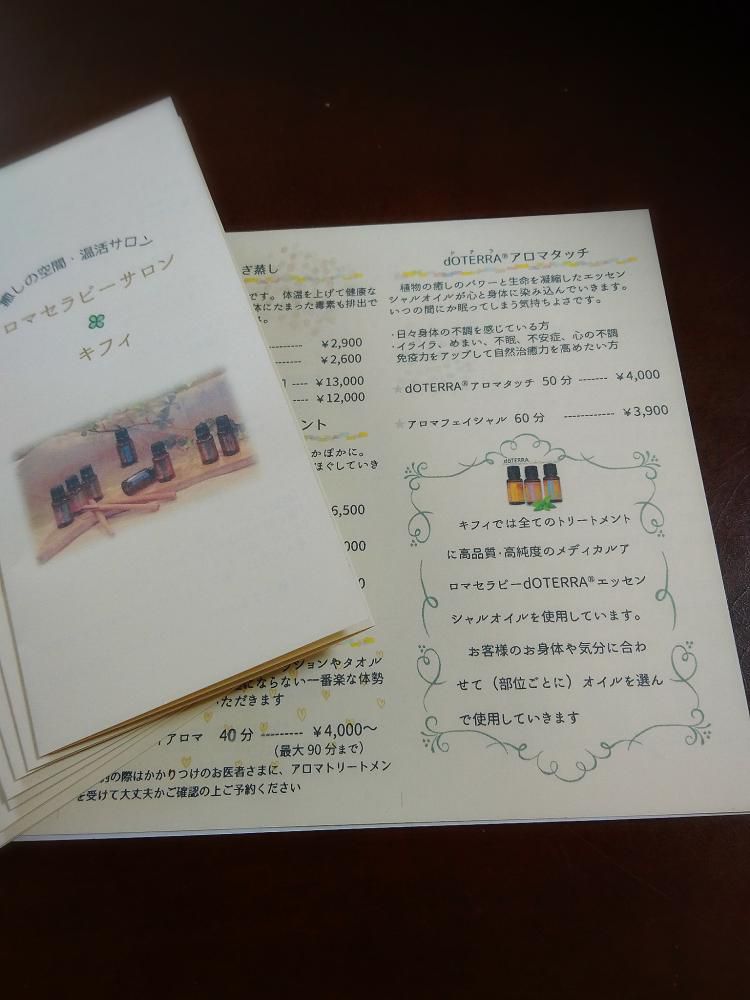 癒しの空間・温活サロン
ロマセラピーサロン
キフィ
ぎ蒸し
です。体温を上げて健康な
体にたまった毒素も排出で
¥2,900
¥2,600
¥13,000
¥12,000
ント
かぽかに。
ほぐしていき
6,500
000
ションやタオル
にならない一番楽な体勢
いただきます
アロマ 40分 --------- ¥4,000～
(最大90分まで)
の際はかかりつけのお医者さまに、アロマトリートメン
を受けて大丈夫かご確認の上ご予約ください
ドテラ
dOTERRA®アロマタッチ
植物の癒しのパワーと生命を凝縮したエッセン
シャルオイルが心と身体に染み込んでいきます。
いつの間にか眠ってしまう気持ちよさです。
・日々身体の不調を感じている方
・イライラ、めまい、不眠、不安症、心の不調
免疫力をアップして自然治癒力を高めたい方
★dOTERRA®アロマタッチ 50分 ------- ¥4,000
★アロマフェイシャル 60分 ------------ ¥3,900
dOTERRA
キフィでは全てのトリートメント
に高品質・高純度のメディカルア
ロマセラピーdOTERRA®エッセン
シャルオイルを使用しています。
お客様のお身体や気分に合わ
せて（部位ごとに）オイルを選ん
で使用していきます